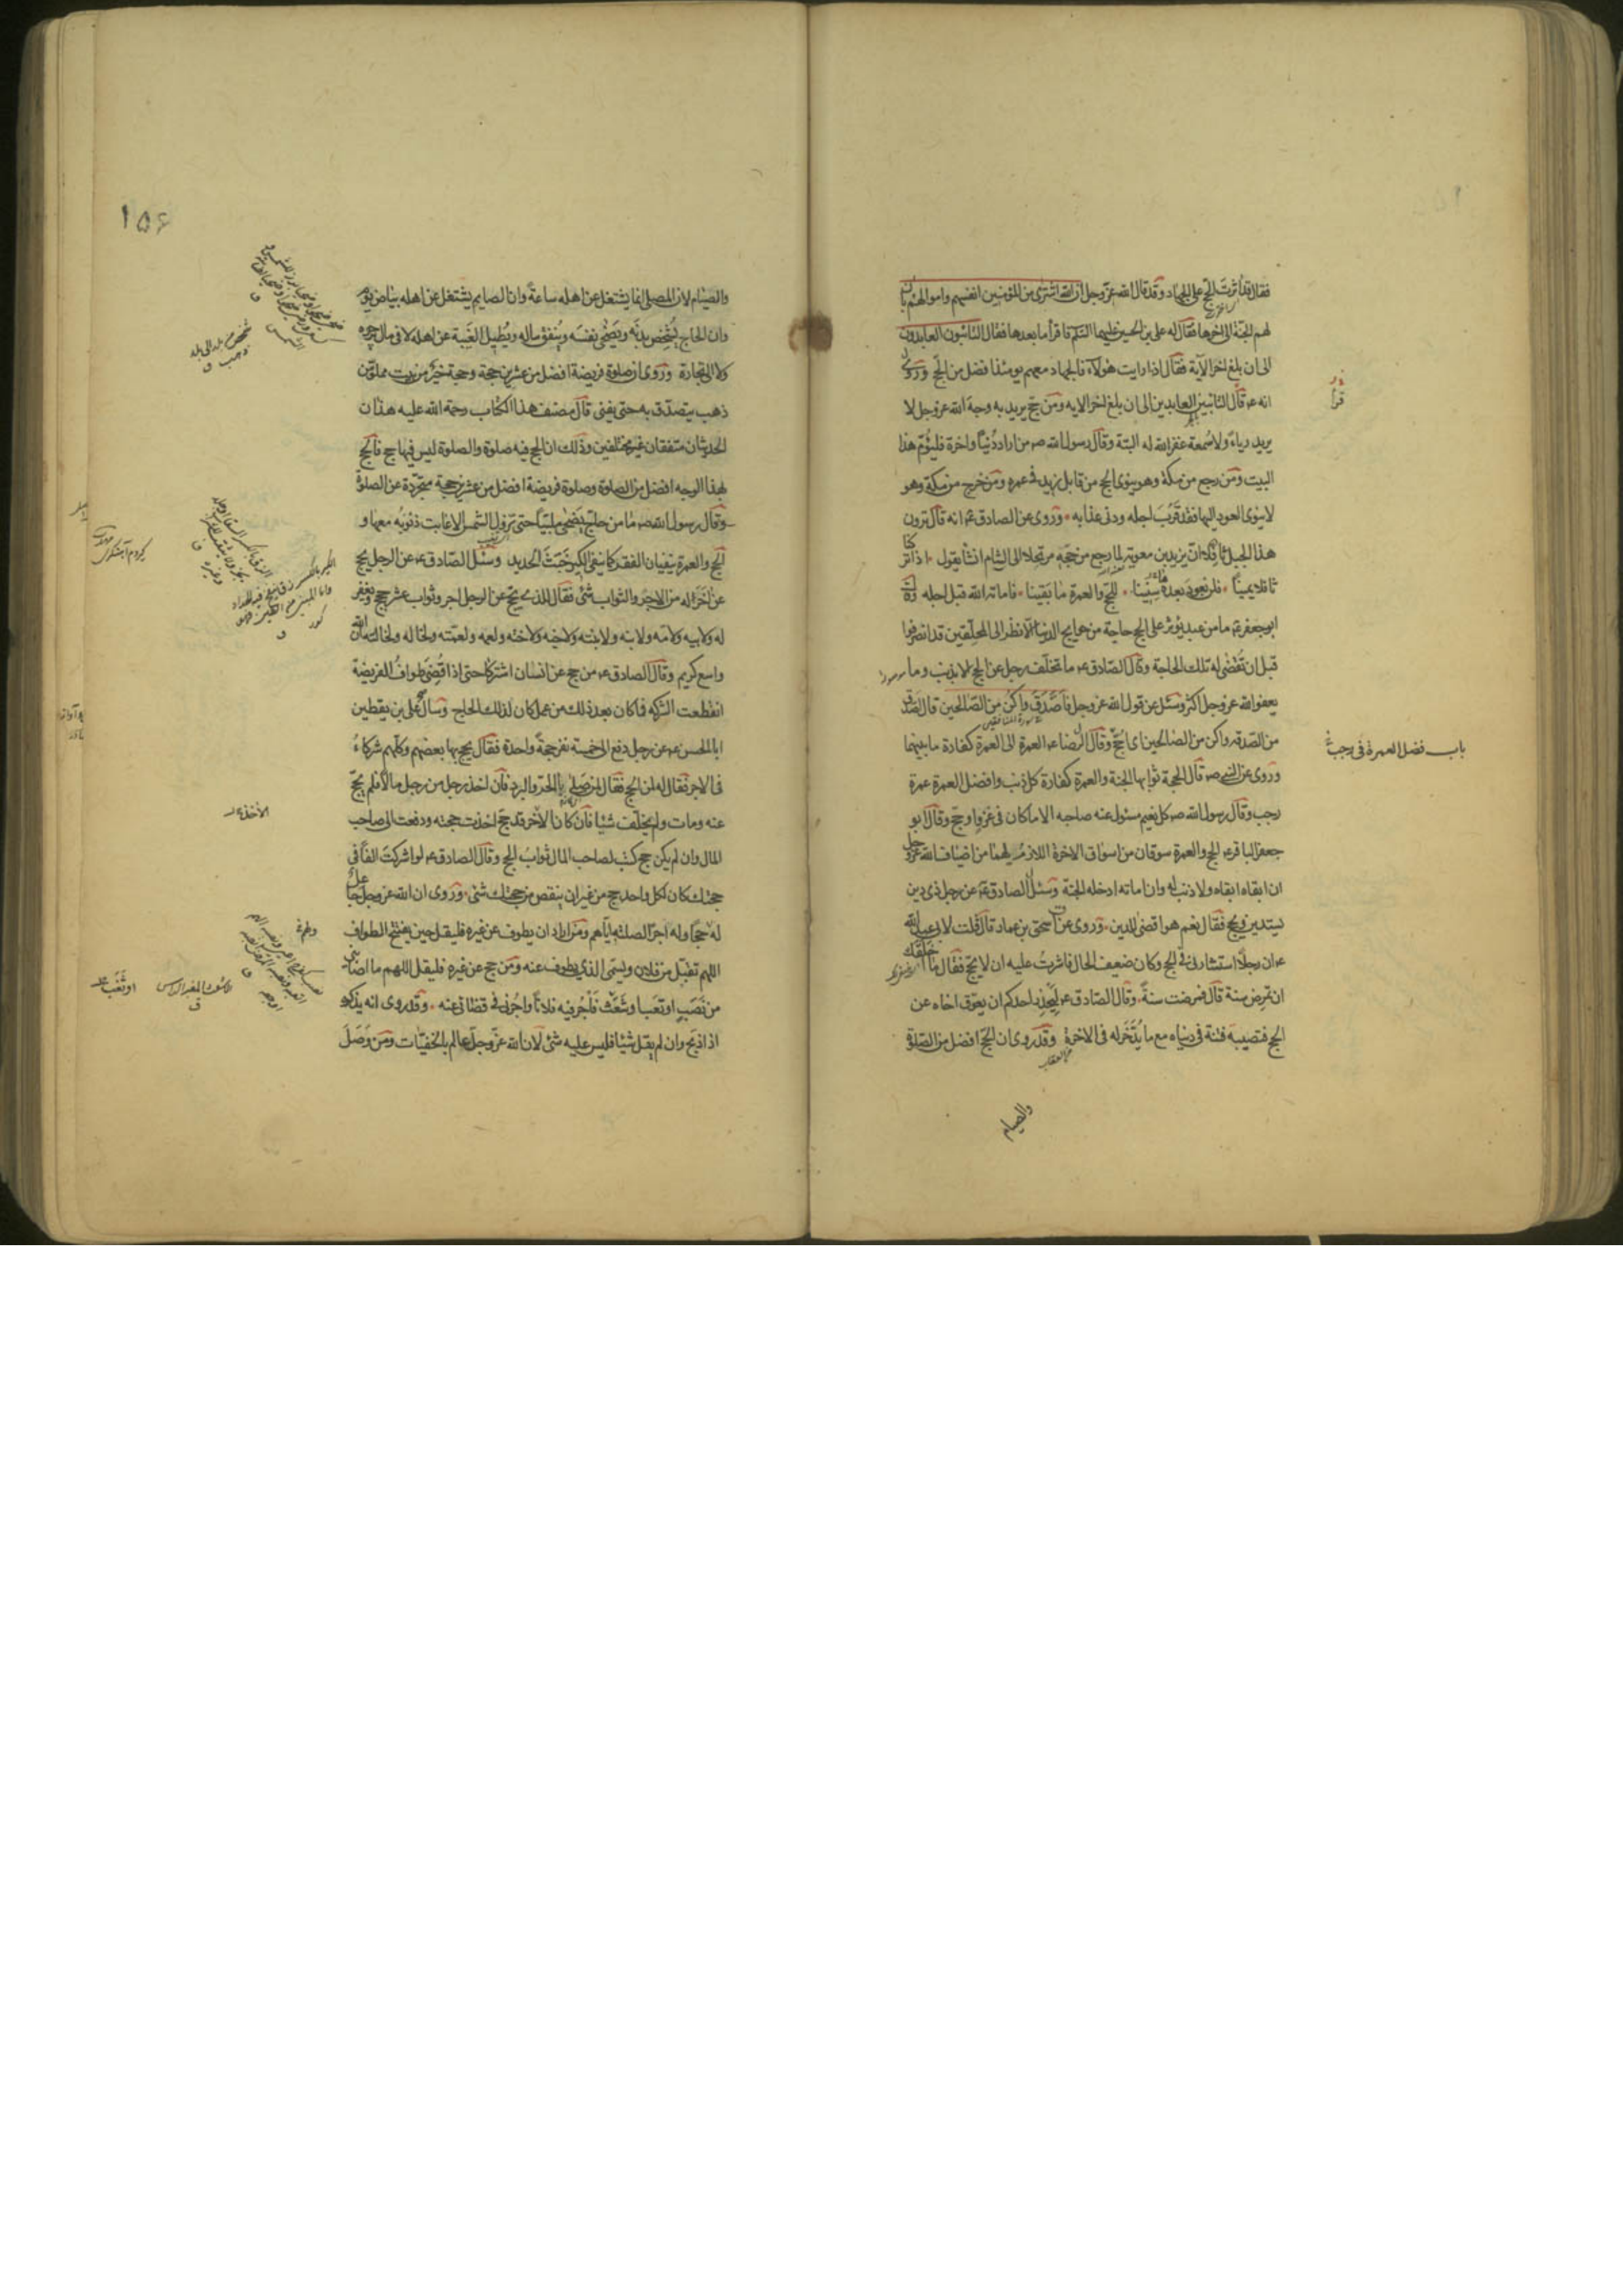 فقال قد آثرت الحج على الجهاد وقد قال الله عز وجل ان الله اشترى من المؤمنين انفسهم واموالهم بان
لهم الجنة الى اخرها فقال له على بن الحسين عليهما السلم فاقرأ ما بعدها فقال التائبون العابدون
الى ان بلغ اخر الآية فقال اذا رايت هؤلاء فالجهاد معهم يومئذ افضل من الحج وروى
انه ع قال التائبين العابدين الى ان بلغ اخر الايه ومن حج يريد به وجه الله عز وجل لا
يريد رياء ولا سمعة غفر الله له البتة وقال رسول الله ص من اراد دنيا واخرة فليؤم هذا
البيت ومن رجع من مكة وهو ينوى الحج من قابل زيد فى عمره ومن خرج من مكة وهو
لا ينوى العود اليها فقد قرب اجله ودنى عذابه وروى عن الصادق ع انه قال ترون
هذا الجبل ثافلا ان يزيد بن معوية لما رجع من حجه مرتحلا الى الشام انشأ يقول اذا تركنا
ثافلا يمينا فلن نعود بعده سنينا للحج والعمرة ما بقينا فاماته الله قبل اجله وقال
ابو جعفر ع ما من عبد يؤثر على الحج حاجة من حوايج الدنيا الا نظر الى المحلقين قد انصرفوا
قبل ان تقضى له تلك الحاجة وقال الصادق ع ما تخلف رجل عن الحج الا بذنب وما
يعفو الله عز وجل اكثر وسئل عن قول الله عز وجل فاصدق واكن من الصالحين قال اصدق
سورة المنافقين
من الصدقه واكن من الصالحين اى احج وقال الرضا ع العمرة الى العمرة كفارة ما بينهما
باب فضل العمرة فى رجب
وروى عن النبى ص قال الحجة ثوابها الجنة والعمرة كفارة كل ذنب وافضل العمرة عمرة
رجب وقال رسول الله ص كل نعيم مسئول عنه صاحبه الا ما كان فى غزو او حج وقال ابو
جعفر الباقر ع الحج والعمرة سوقان من اسواق الاخرة اللازم لهما من اضياف الله عز وجل
ان ابقاه ابقاه ولا ذنب له وان اماته ادخله الجنة وسئل الصادق ع عن رجل ذى دين
يستدين ويحج فقال نعم هو اقضى للدين وروى عن اسحق بن عمار قال قلت لابى عبد الله
ع ان رجلا استشارنى فى الحج وكان ضعيف الحال فاشرت عليه ان لا يحج فقال ما اخلقك
ان تمرض سنة قال فمرضت سنة وقال الصادق ع ليحذر احدكم ان يعوق اخاه عن
الحج فتصيبه فتنة فى دنياه مع ما يدخر له فى الاخرة وقد روى ان الحج افضل من الصلوة
من العقاب
والصيام
١٥۶
والصيام لان المصلى انما يشتغل عن اهله ساعة وان الصايم يشتغل عن اهله بياض يوم
وان الحاج يشخص بدنه ويضحى نفسه وينفق ماله ويطيل الغيبة عن اهله لا فى مال يرجوه
ولا الى تجارة وروى ان صلوة فريضة افضل من عشرين حجة وحجة خير من بيت مملو من
ذهب يتصدق به حتى يفنى قال مصنف هذا الكتاب رحمة الله عليه هذان
الحديثان متفقان غير مختلفين وذلك ان الحج فيه صلوة والصلوة ليس فيها حج فالحج
بهذا الوجه افضل من الصلوة وصلوة فريضة افضل من عشرين حجة متجردة عن الصلوة
وقال رسول الله ص ما من حاج يضحى ملبيا حتى تزول الشمس الا غابت ذنوبه معها و
الحج والعمرة ينفيان الفقر كما ينفى الكير خبث الحديد وسئل الصادق ع عن الرجل يحج
عن اخر اله من الاجر والثواب شئ فقال للذى يحج عن الرجل اجر وثواب عشر حجج ويغفر
له ولابيه ولامه ولابنه ولابنته ولاخيه ولاخته ولعمه ولعمته ولخاله ولخالته ان الله
واسع كريم وقال الصادق ع من حج عن انسان اشتركا حتى اذا قضى طواف الفريضة
انقطعت الشركه فما كان بعد ذلك من عمل كان لذلك الحاج وسأل على بن يقطين
ابا الحسن ع عن رجل دفع الى خمسة نفر حجة واحدة فقال يحج بها بعضهم وكلهم شركاء
فى الاجر فقال له لمن الحج فقال لمن صلى بالحر والبرد فان اخذ رجل من رجل مالا فلم يحج
عنه ومات ولم يخلف شيئا فان كان الآخر قد حج اخذت حجته ودفعت الى صاحب
الآخذ
المال وان لم يكن حج كتب لصاحب المال ثواب الحج وقال الصادق ع لو اشركت الفا فى
حجتك كان لكل واحد حج من غير ان ينقص من حجتك شئ وروى ان الله عز وجل جاعل
له حجا وله اجرا لصلته اياهم ومن اراد ان يطوف عن غيره فليقل حين يفتتح الطواف
اللهم تقبل من فلان ويسمى الذى يطوف عنه ومن حج عن غيره فليقل اللهم ما اصابنى
من نصب او تعب او شعث فاجر فيه فلانا واجرنى فى قضائى عنه وقد روى انه يذكره
اذا ذبح وان لم يقل شيئا فليس عليه شئ لان الله عز وجل عالم بالخفيات ومن وصل